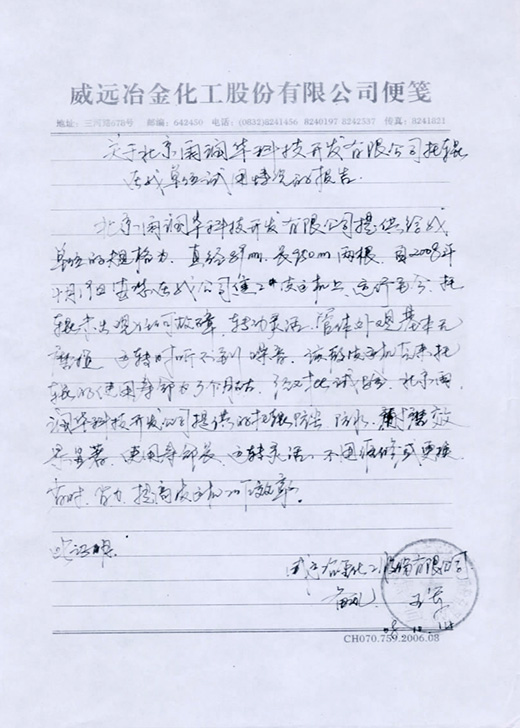 威远冶金化工股份有限公司便笺
地址：三河路678号 邮编：642450 电话：(0832)8241456 8240197 8242537 传真：8241821
关于北京国润华科技开发有限公司托辊
在我单位试用情况的报告
北京国润华科技开发有限公司提供给我
单位的规格为，直径89m，长950m两根，自2008年
日安装在我公司焦2#皮运机上，运行至今，托
辊未出现任何故障，转动灵活，管体外观基本无
磨损 运转时听不到噪音，该部皮运机原来托
辊的使用寿命为3个月左右，经对比试验，北京国
润华科技开发公司提供的托辊防尘 防水，耐磨效
果显著，使用寿命长，运转灵活，不用维修或更换
省时，省力，提高皮运机工作效率。
此证明。
威远冶金化工股份有限公司
CH070.759.2006.08